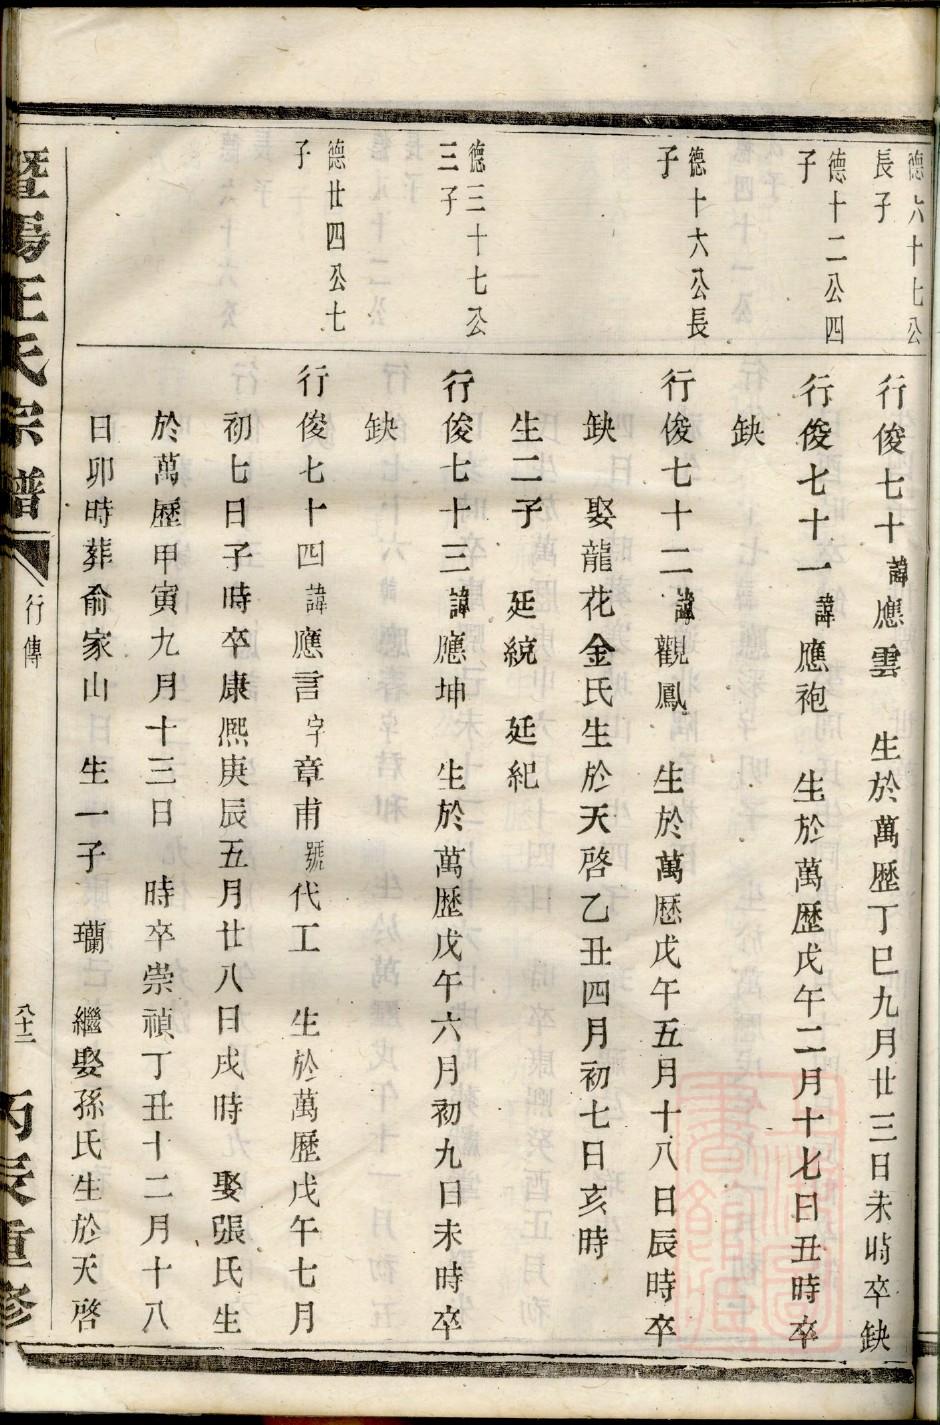 德六十七公
長子
行俊七十諱應雲　生於萬歷丁巳九月廿三日未時卒缺
德十二公四
子
行俊七十一諱應袍　生於萬歷戊午二月十七日丑時卒
缺
德十六公長
子
行俊七十二諱觀鳳　生於萬歷戊午五月十八日辰時卒
缺　娶龍花金氏生於天啓乙丑四月初七日亥時
生二子　廷統　廷紀
德三十七公
三子
行俊七十三諱應坤　生於萬歷戊午六月初九日未時卒
缺
德廿四公七
子
行俊七十四諱應言字章甫號代工　生於萬歷戊午七月
初七日子時卒康熙庚辰五月廿八日戌時　娶張氏生
於萬歷甲寅九月十三日　時卒崇禎丁丑十二月十八
日卯時葬俞家山　生一子　瓓　繼娶孫氏生於天啓
暨陽王氏宗譜
行傳
八十二
丙辰重修